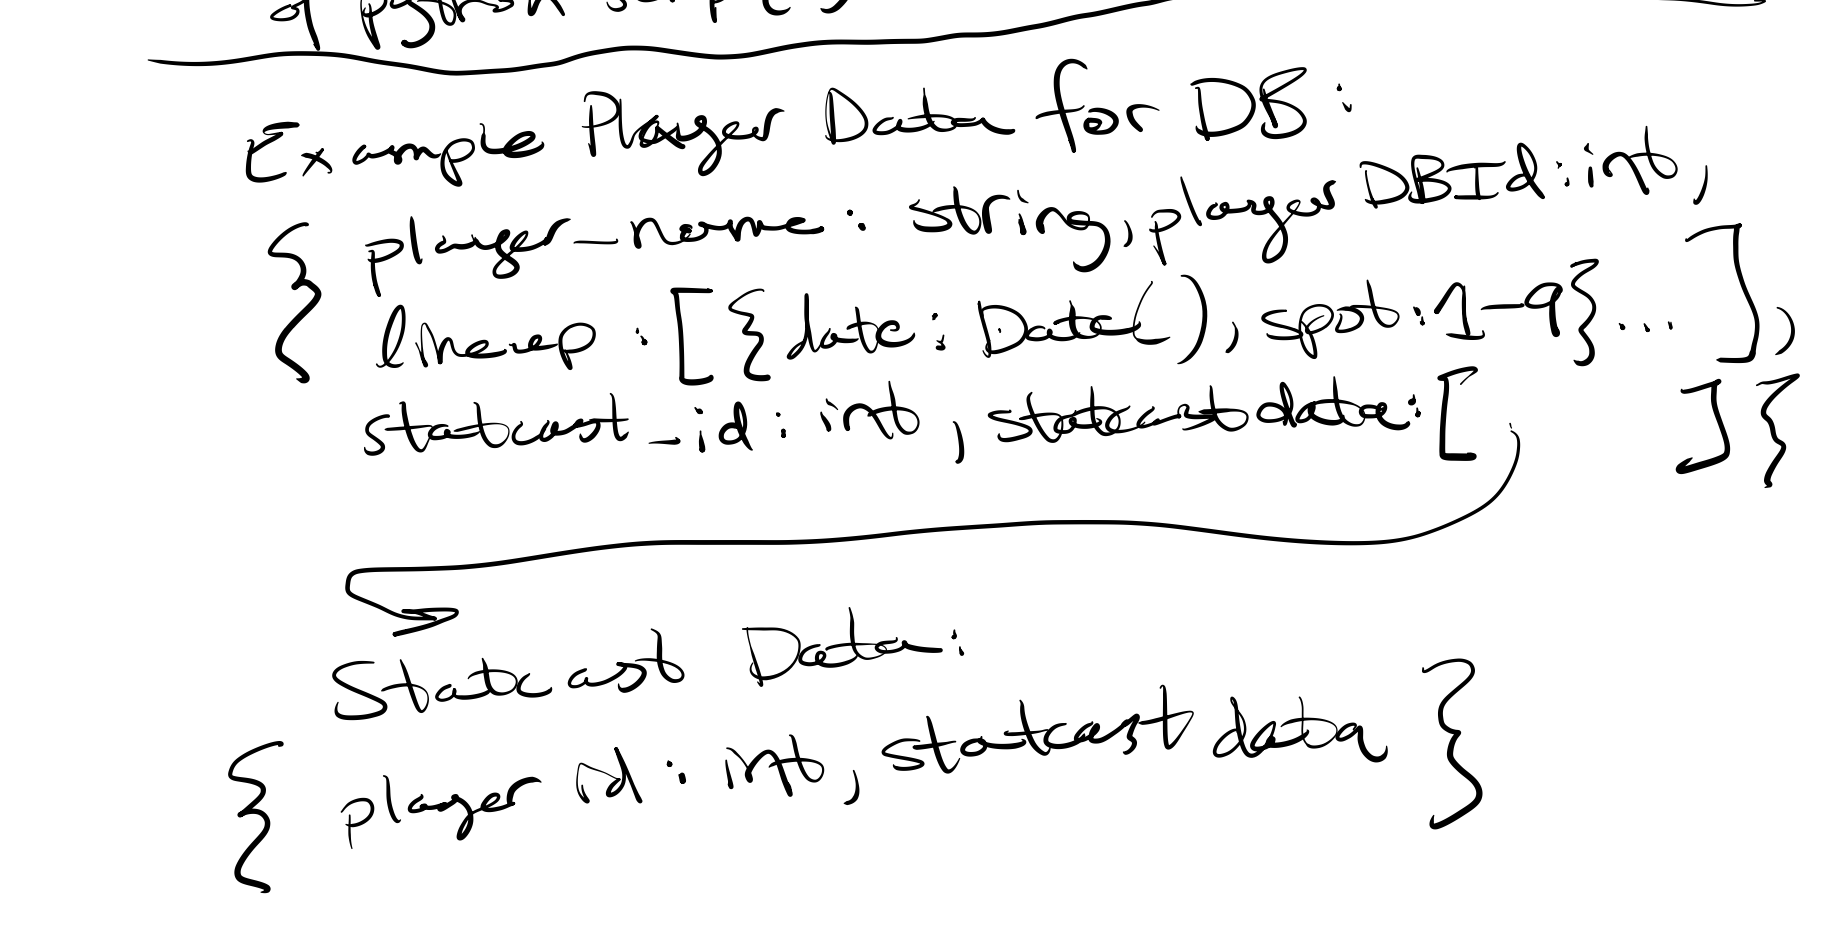 of python script(s)
Example Player Data for DB:
{ player_name: string, playerDBId: int,
lineup: [{date: Date(), spot: 1-9}...],
statcast_id: int, statcast data: [ ]}
Statcast Data:
{ player id: int, statcast data }